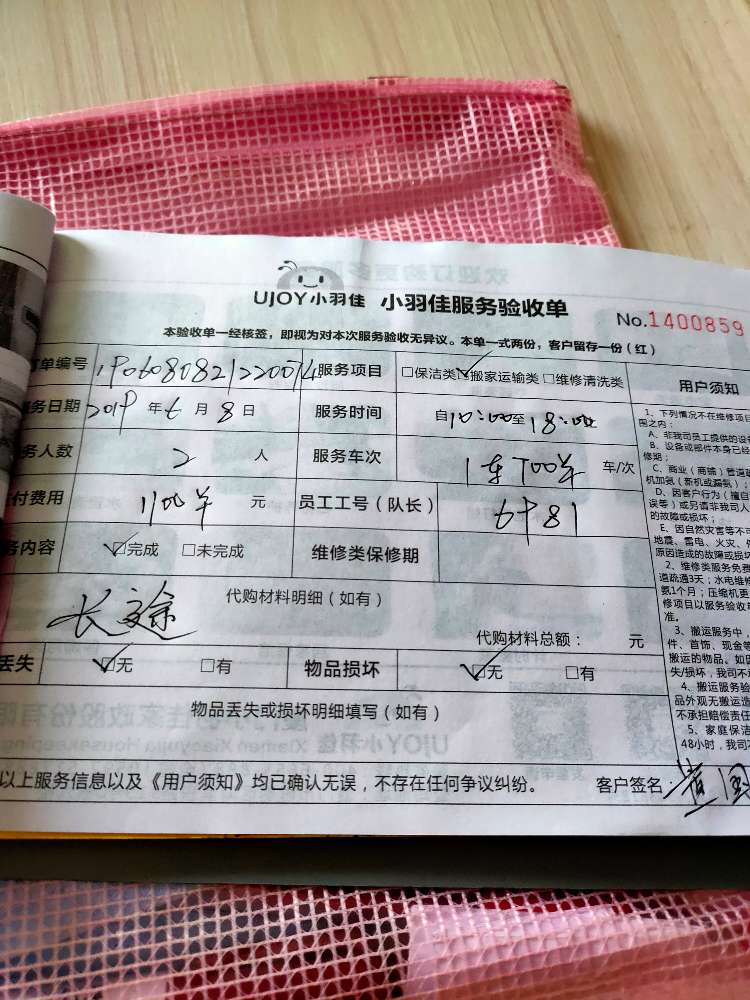 UJOY小羽佳 小羽佳服务验收单
No.1400859
本验收单一经核签，即视为对本次服务验收无异议。本单一式两份，客户留存一份（红）
单编号 服务项目 □保洁类☑搬家运输类□维修清洗类 用户须知
务日期 2019年6月8日 服务时间 自10:00至18:00
务人数 2人 服务车次 1车700单 车/次
付费用 1100单 元 员工工号（队长） 6781
务内容 ☑完成 □未完成 维修类保修期
代购材料明细（如有）
长途
代购材料总额： 元
丢失 ☑无 □有 物品损坏 ☑无 □有
物品丢失或损坏明细填写（如有）
以上服务信息以及《用户须知》均已确认无误，不存在任何争议纠纷。 客户签名：
1、下列情况不在维修项目
围之内：
A、非我司员工提供的设备
B、设备或部件本身已经
修期；
C、商业（商铺）管道
机加氨（新机或漏氨）；
D、因客户行为（擅自
误等）或另请非我司人
的故障或损坏；
E、因自然灾害等不可
地震、雷电、火灾、
原因造成的故障或损坏
2、维修类服务免费
道疏通3天；水电维修
氨1个月；压缩机更
修项目以服务验收单
准。
3、搬运服务中，
件、首饰、现金等
搬运的物品。如因
失/损坏，我司不承
4、搬运服务验
品外观无搬运造
不承担赔偿责任
5、家庭保洁
48小时，我司不